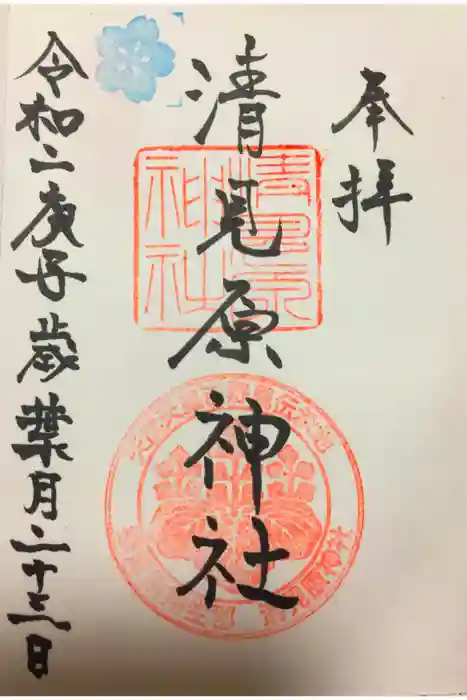 奉拝
清見原神社
令和二庚子歳葉月二十三日
清見原
神社